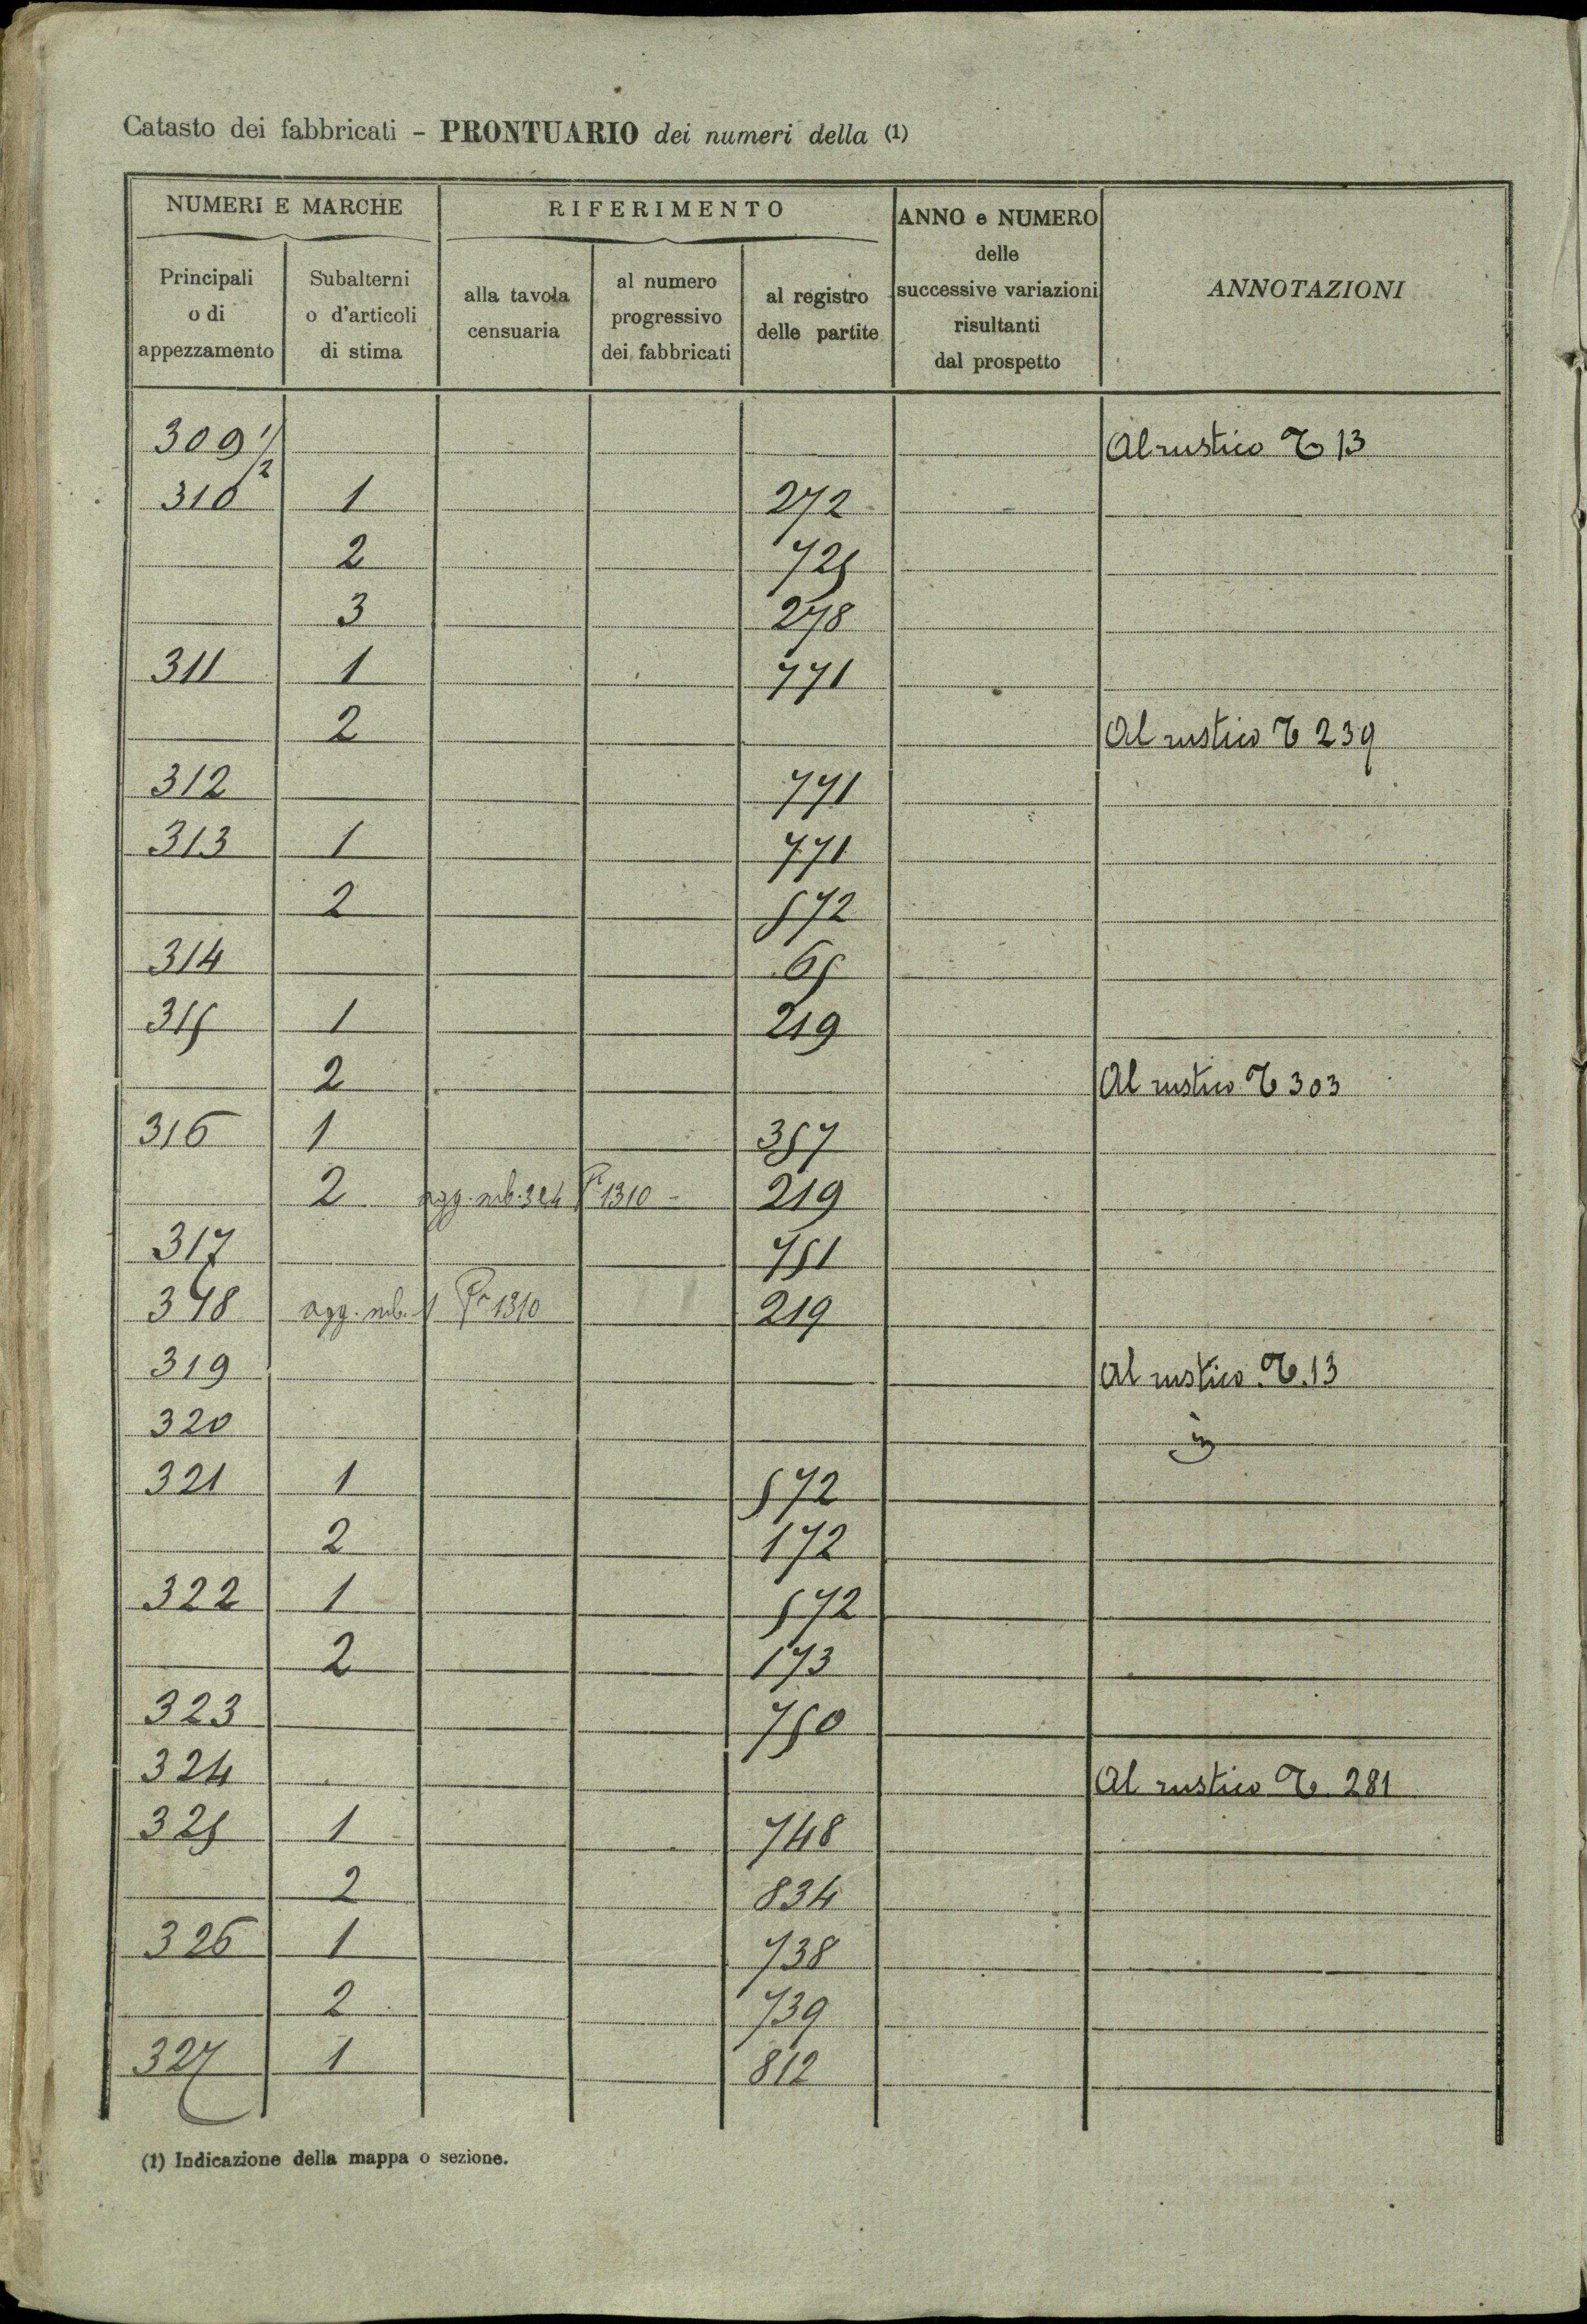 Catasto dei fabbricati - PRONTUARIO dei numeri della (1)
NUMERI E MARCHE
RIFERIMENTO
ANNO e NUMERO delle successive variazioni risultanti dal prospetto
ANNOTAZIONI
Principali o di appezzamento
Subalterni o d'articoli di stima
alla tavola censuaria
al numero progressivo dei fabbricati
al registro delle partite
309 1/2 Al rustico P 13
310 1 272
2 725
3 278
311 1 771
2 Al rustico P 239
312 771
313 1 771
2 572
314 65
315 1 219
2 Al rustico P 303
316 1 357
2 agg. sub. 324 P. 1310 - 219
317 751
318 agg. sub. 1 P. 1310 219
319 Al rustico P. 13
320
321 1 572
2 172
322 1 572
2 173
323 750
324 Al rustico P. 281
325 1 748
2 834
326 1 738
2 739
327 1 812
(1) Indicazione della mappa o sezione.